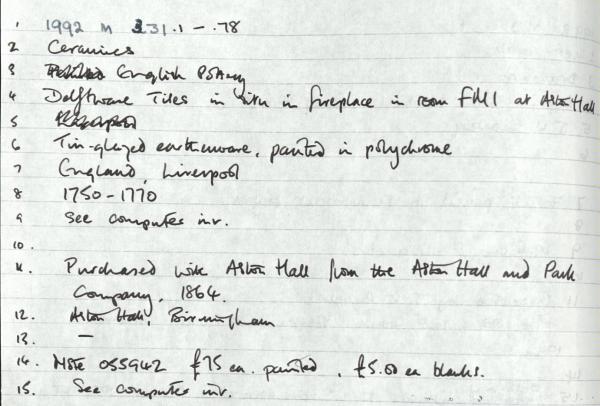 1 1992 M 331.1 - .78
2 Ceramics
3 English Pottery
4 Delftware Tiles in situ in fireplace in room FM1 at Aston Hall
5
6 Tin-glazed earthenware, painted in polychrome
7 England, Liverpool
8 1750-1770
9 See computer inv.
10.
11. Purchased with Aston Hall from the Aston Hall and Park
Company, 1864.
12. Aston Hall, Birmingham
13. —
14. Note 055942 £75 ea. painted, £5.00 ea blanks.
15. See computer inv.